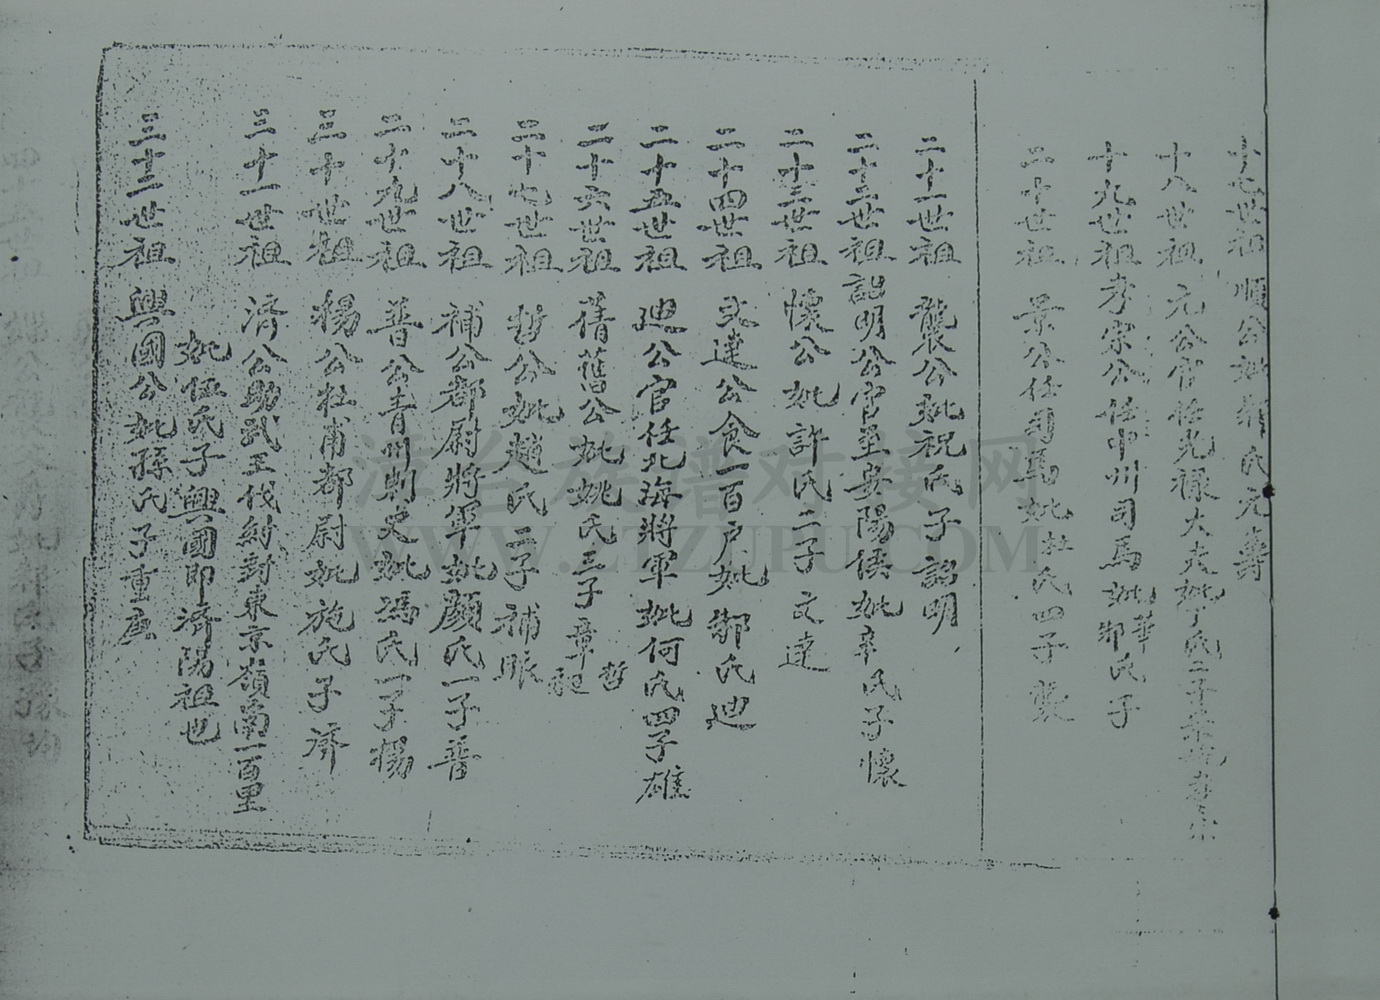 十七世祖 順公妣 氏元壽
十八世祖 元公官任光祿大夫妣丁氏二子
十九世祖 孝宗公任中州司馬妣華鄒氏子
二十世祖 景公任司馬妣杜氏四子襲
二十一世祖 襲公妣祝氏子詔明
二十二世祖 詔明公官至安陽侯妣辛氏子懷
二十三世祖 懷公妣許氏二子文達
二十四世祖 文達公食一百户妣鄒氏迪
二十五世祖 迪公官任北海將軍妣何氏四子雄
二十六世祖 舊公妣姚氏三子章哲
二十七世祖 哲公妣趙氏二子補眠
二十八世祖 補公都尉將軍妣顏氏一子普
二十九世祖 普公青州刺史妣馮氏一子楊
三十世祖 楊公杜甫都尉妣施氏子濟
三十一世祖 濟公助武王伐紂封東京嶺南一百里
妣伍氏子興國即濟陽祖也
三十二世祖 興國公妣孫氏子重
漳台族谱对接网
WWW.ZTZUPU.COM